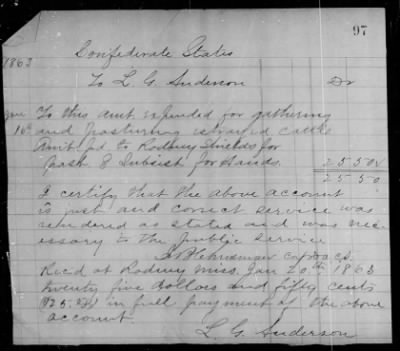 97
Confederate States
1863
To L. G. Anderson Dr
To this amt. expended for gathering
16 and pasturing estrayed cattle
Amt. pd to Rodney Shields for
& Subsist for hands. 25 50
25 50
I certify that the above account
is just and correct service was
rendered as stated and was nec-
essary to the public service
Capt & ACS
Rec'd at Rodney Miss. Jan 20th 1863
twenty five dollars and fifty cents
in full payment of the above
account.
L. G. Anderson